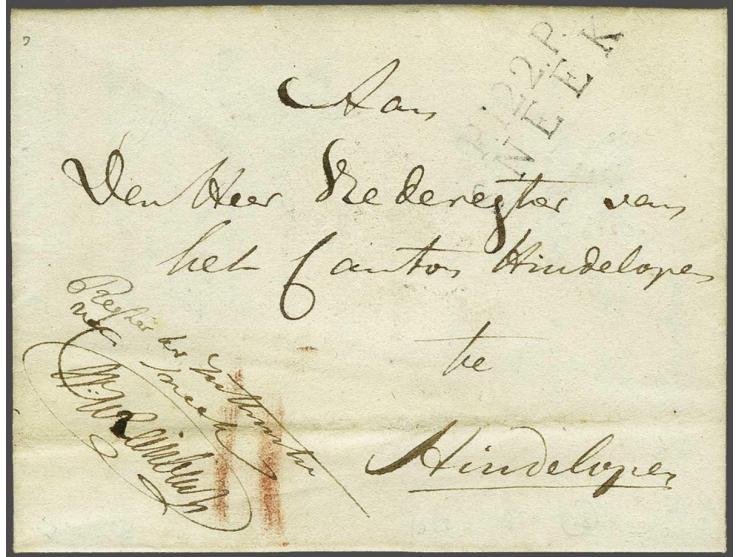 P.122.P.
SNEEK
Aan
Den Heer Vrederegter van
het Canton Hindelopen
te
Hindelopen
Regter ter Instructie
Sneek